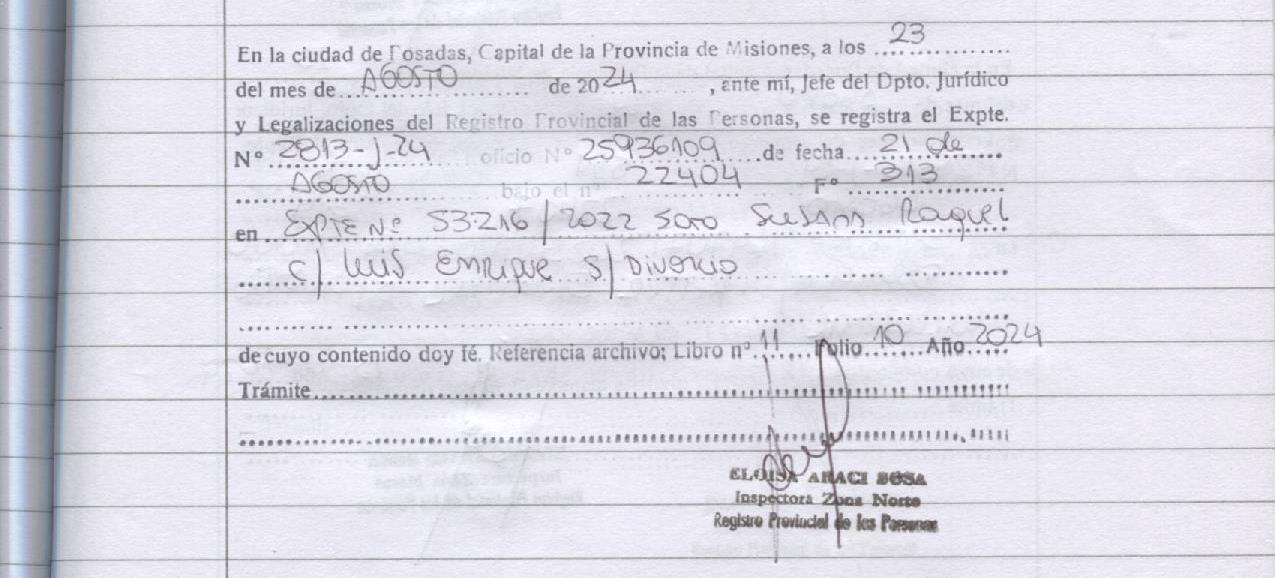 En la ciudad de Posadas, Capital de la Provincia de Misiones, a los 23
del mes de AGOSTO de 2024, ante mí, Jefe del Dpto. Jurídico
y Legalizaciones del Registro Provincial de las Personas, se registra el Expte.
Nº 2813-J-24 oficio Nº 25936109 de fecha 21 de
AGOSTO bajo el nº 22404 Fº 313
en EXPTE Nº 53216/2022 SOTO Susana Raquel
c/ Luis Enrique S/ Divorcio
de cuyo contenido doy fé. Referencia archivo; Libro nº 11 Folio 10 Año 2024
Trámite
ELOISA ARACI SOSA
Inspectora Zona Norte
Registro Provincial de las Personas